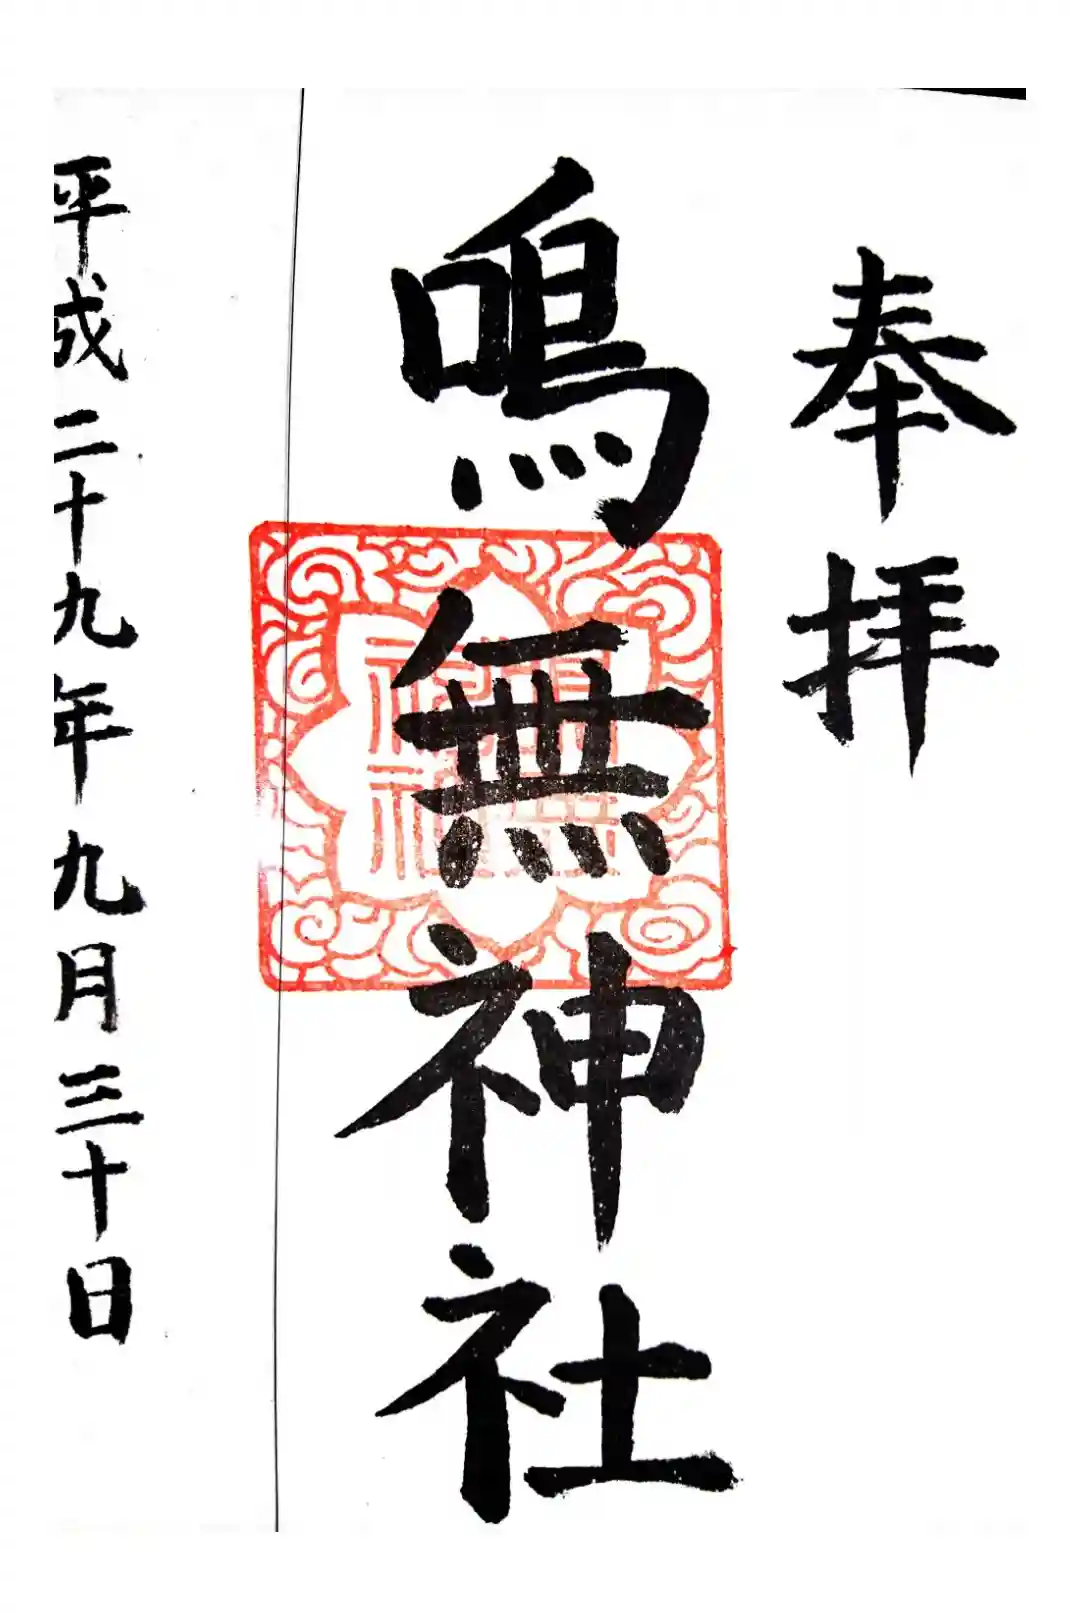 奉拝
鳴無神社
平成二十九年九月三十日